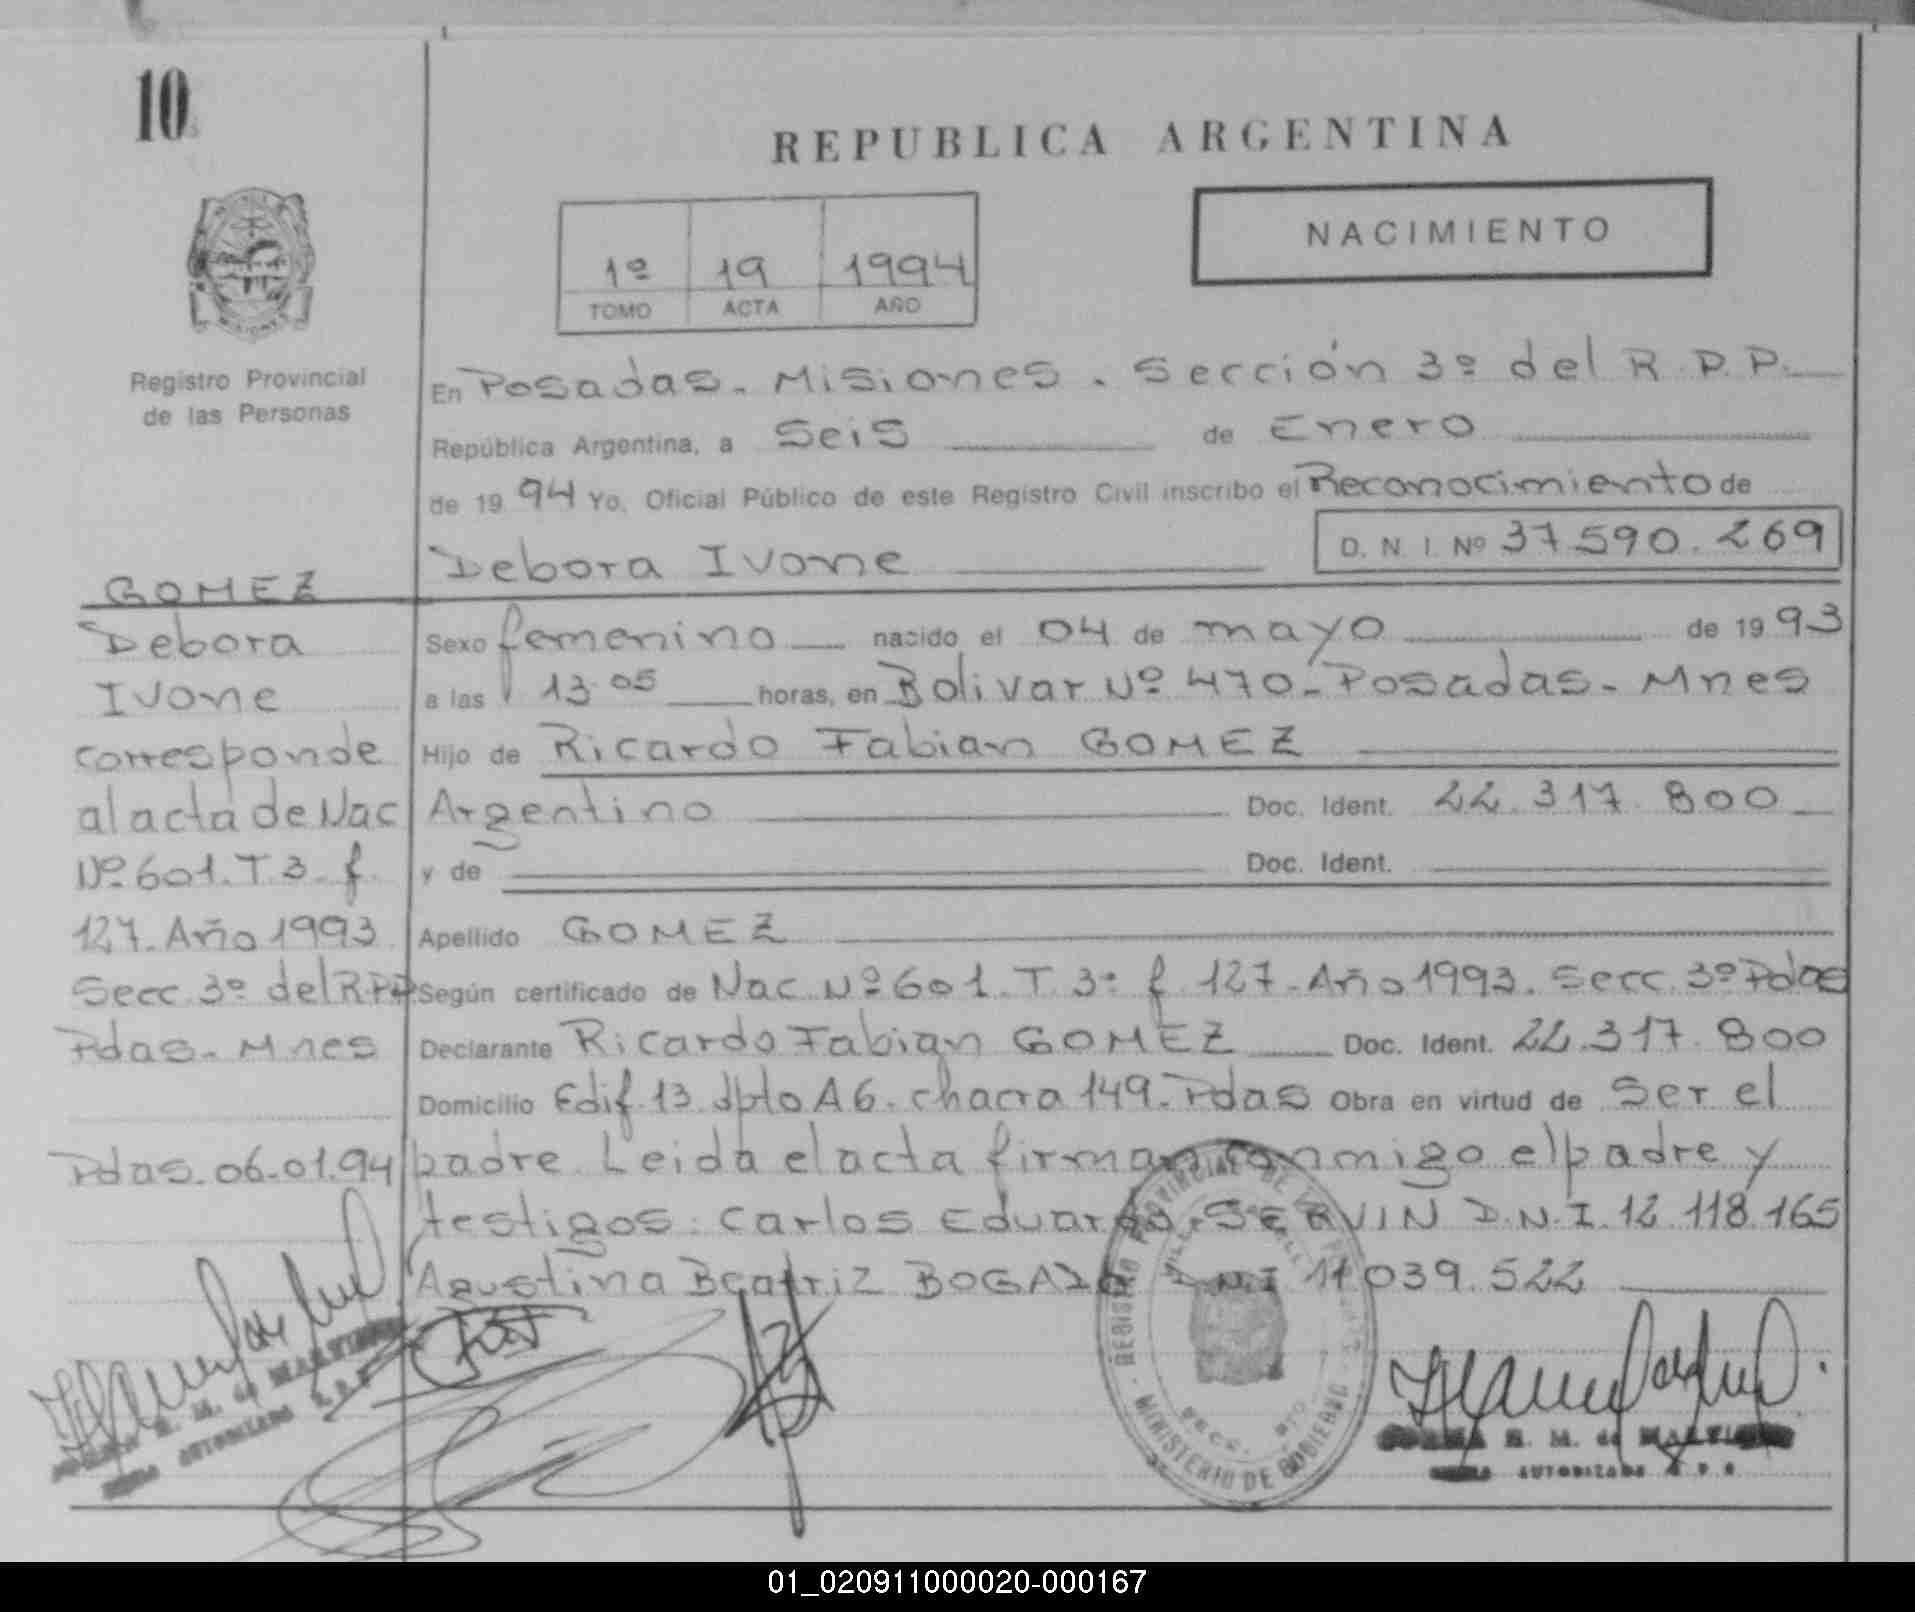 10
REPUBLICA ARGENTINA
NACIMIENTO
1º 19 1994
TOMO ACTA AÑO
Registro Provincial
de las Personas
En Posadas. Misiones. Sección 3º del R.P.P.
República Argentina, a Seis de Enero
de 1994 Yo, Oficial Público de este Registro Civil inscribo el Reconocimiento de
Debora Ivone D. N. I. Nº 37.590.269
GOMEZ
Debora
Ivone
corresponde
al acta de Nac
Nº 601. T. 3. f.
127. Año 1993
Secc. 3º del R.P.P
Pdas. Mnes
Pdas. 06.01.94
Sexo femenino nacido el 04 de mayo de 1993
a las 13.05 horas, en Bolivar Nº 470- Posadas- Mnes
Hijo de Ricardo Fabian GOMEZ
Argentino Doc. Ident. 22.317.800
y de Doc. Ident.
Apellido GOMEZ
Según certificado de Nac. Nº 601. T. 3º f. 127. Año 1993. Secc. 3º Pdas
Declarante Ricardo Fabian GOMEZ Doc. Ident. 22.317.800
Domicilio Edif. 13. dpto A6. chacra 149. Pdas Obra en virtud de Ser el
padre. Leida el acta firman conmigo el padre y
testigos: Carlos Eduardo SERVIN D.N.I. 12.118.165
Agustina Beatriz BOGADO D.N.I 11.039.522
REGISTRO PROVINCIAL DE LAS
MINISTERIO DE GOBIERNO
M. de
AUTORIZADA
M. de
AUTORIZADA
01_020911000020-000167